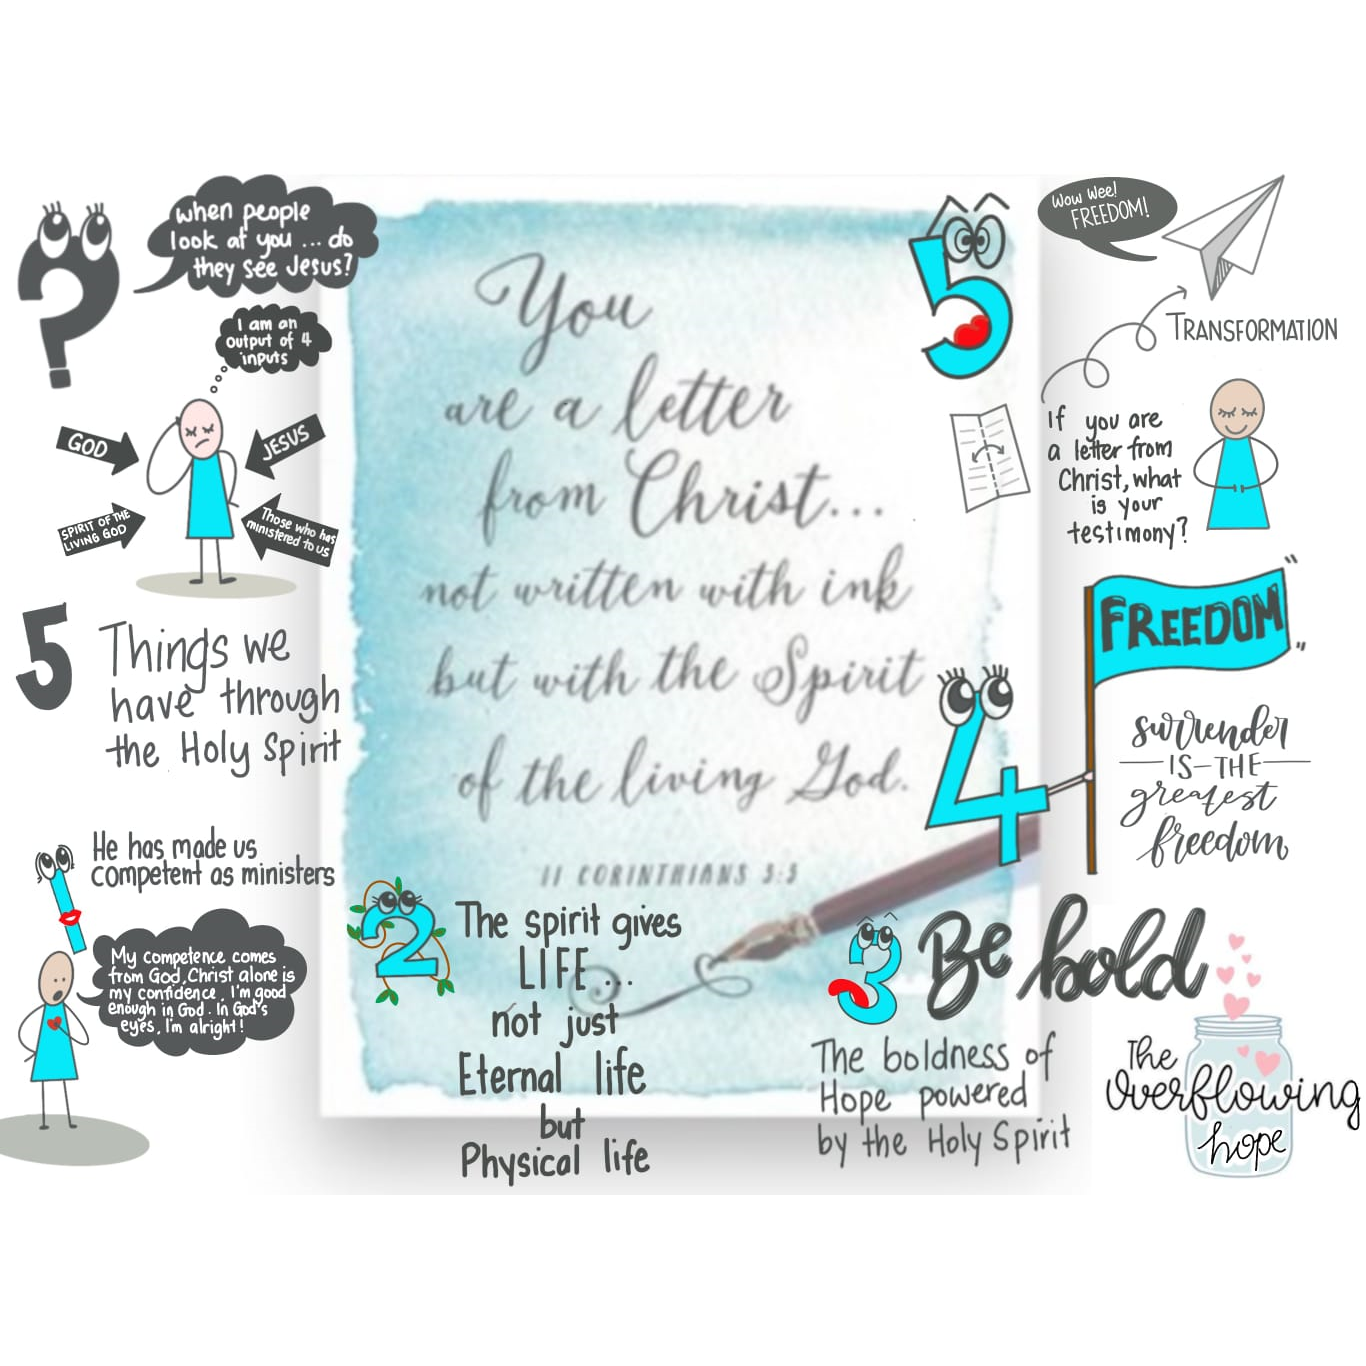 when people
look at you ... do
they see Jesus?
I am an
output of 4
inputs
GOD
JESUS
SPIRIT OF THE
LIVING GOD
Those who has
ministered to us
5 Things we
have through
the Holy Spirit
He has made us
competent as ministers
My competence comes
from God, Christ alone is
my confidence, I'm good
enough in God. In God's
eyes, I'm alright!
You
are a letter
from Christ...
not written with ink
but with the Spirit
of the living God.
II CORINTHIANS 3:3
2 The spirit gives
LIFE...
not just
Eternal life
but
Physical life
3 Be bold
The boldness of
Hope powered
by the Holy Spirit
4
"FREEDOM"
surrender
IS-THE
greatest
freedom
5
Wow Wee!
FREEDOM!
TRANSFORMATION
If you are
a letter from
Christ, what
is your
testimony?
The
Overflowing
hope